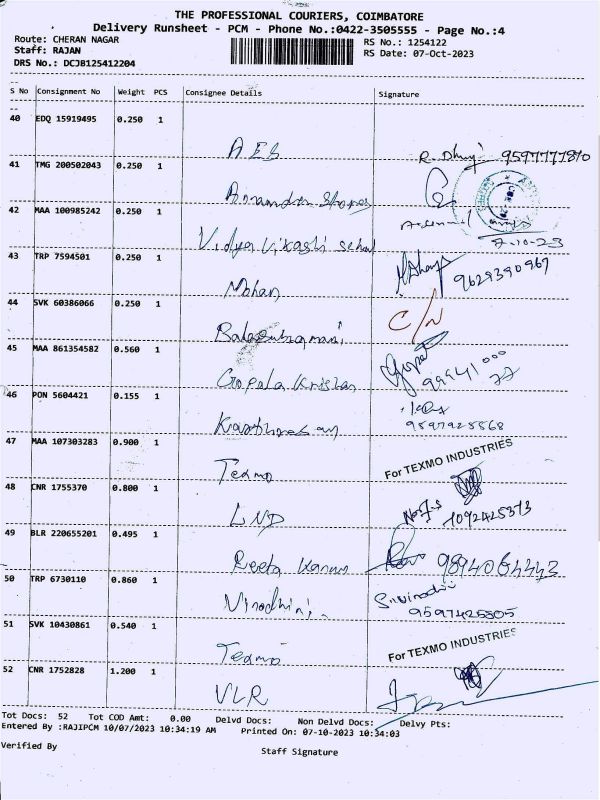 THE PROFESSIONAL COURIERS, COIMBATORE
Delivery Runsheet - PCM - Phone No.:0422-3505555 - Page No.:4
Route: CHERAN NAGAR
RS No.: 1254122
Staff: RAJAN
RS Date: 07-Oct-2023
DRS No.: DCJB125412204
S No Consignment No Weight PCS Consignee Details Signature
40 EDQ 15919495 0.250 1
AES
R. 9597777870
41 TMG 200502043 0.250 1
42 MAA 100985242 0.250 1
Vidya Vikashi School
7-10-23
43 TRP 7594501 0.250 1
Mohan
9629390967
44 SVK 60386066 0.250 1
Balasubramani
C/N
45 MAA 861354582 0.560 1
Gopala Krishan
Gopal
46 PON 5604421 0.155 1
9597925568
47 MAA 107303283 0.900 1
Texmo
For TEXMO INDUSTRIES
48 CNR 1755370 0.800 1
LND
49 BLR 220655201 0.495 1
9894064443
50 TRP 6730110 0.860 1
Virodhini
9597425805
51 SVK 10430861 0.540 1
Texmo
For TEXMO INDUSTRIES
52 CNR 1752828 1.200 1
VLR
Tot Docs: 52 Tot COD Amt: 0.00 Delvd Docs: Non Delvd Docs: Delvy Pts:
Entered By :RAJIPCM 10/07/2023 10:34:19 AM Printed On: 07-10-2023 10:34:03
Verified By
Staff Signature